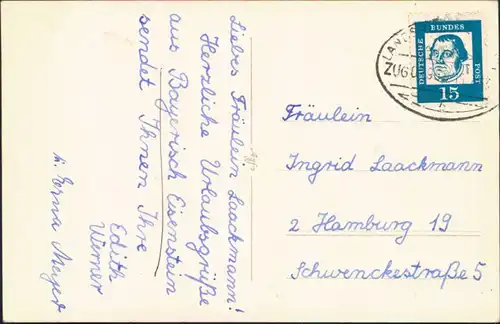 Liebes Fräulein Laackmann!
Herzliche Urlaubsgrüße
aus Bayerisch Eisenstein
sendet Ihnen Ihre
Edith
Werner
u. Erna Meyer
DEUTSCHE
BUNDES
POST
15
ZUG
Fräulein
Ingrid Laackmann
2 Hamburg 19
Schwenckestraße 5